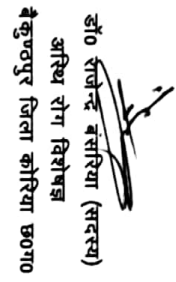 डॉ0 राजेन्द्र बंसरिया (सदस्य)
अस्थि रोग विशेषज्ञ
बैकुण्ठपुर जिला कोरिया छ0ग0